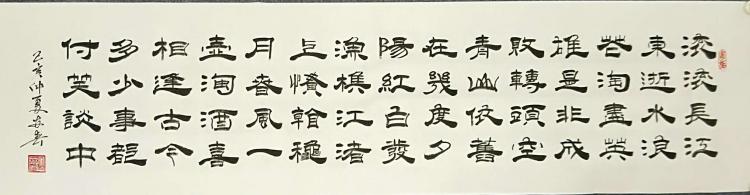 滾滾長江
東逝水浪
花淘盡英
雄是非成
敗轉頭空
青山依舊
在幾度夕
陽紅白發
漁樵江渚
上慣看穐
月春風一
壺濁酒喜
相逢古今
多少事都
付笑談中
己亥仲夏